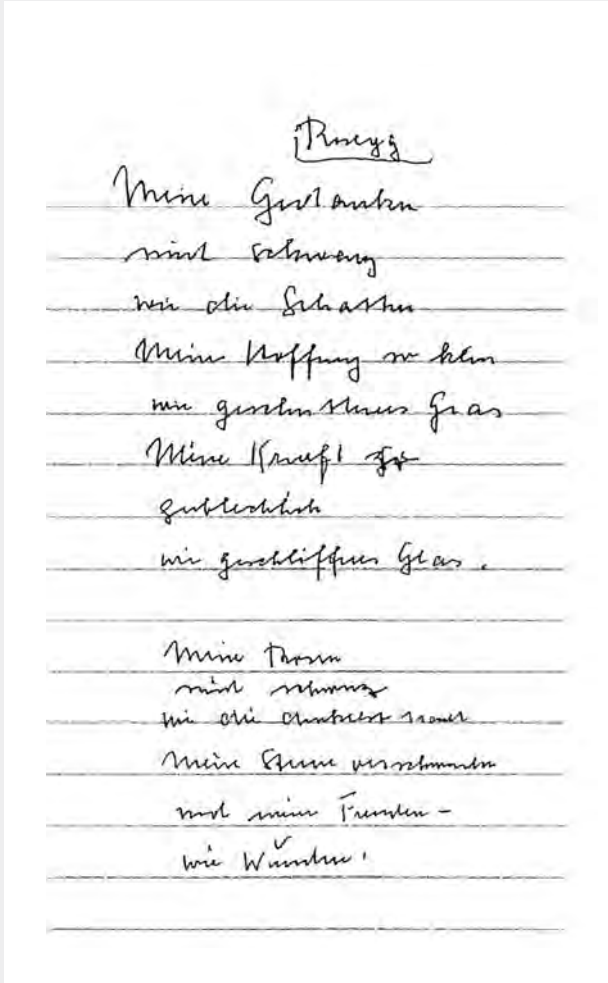 Meine Gedanken
sind schwarz
wie die Schatten
Meine Hoffnung so klein
wie geschnittenes Gras
Meine Kraft so
zerbrechlich
wie geschliffenes Glas.
Meine
sind schwarz
wie die
Meine Sterne verschwunden
und meine Freuden –
wie Wunden.